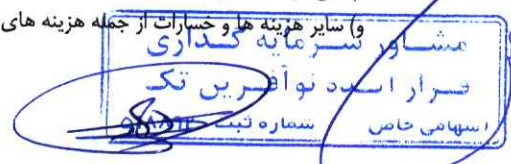 و) سایر هزینه ها و خسارات از جمله هزینه های
مشاور سرمایه گذاری
نوآفرین تک
سهامی خاص شماره ثبت